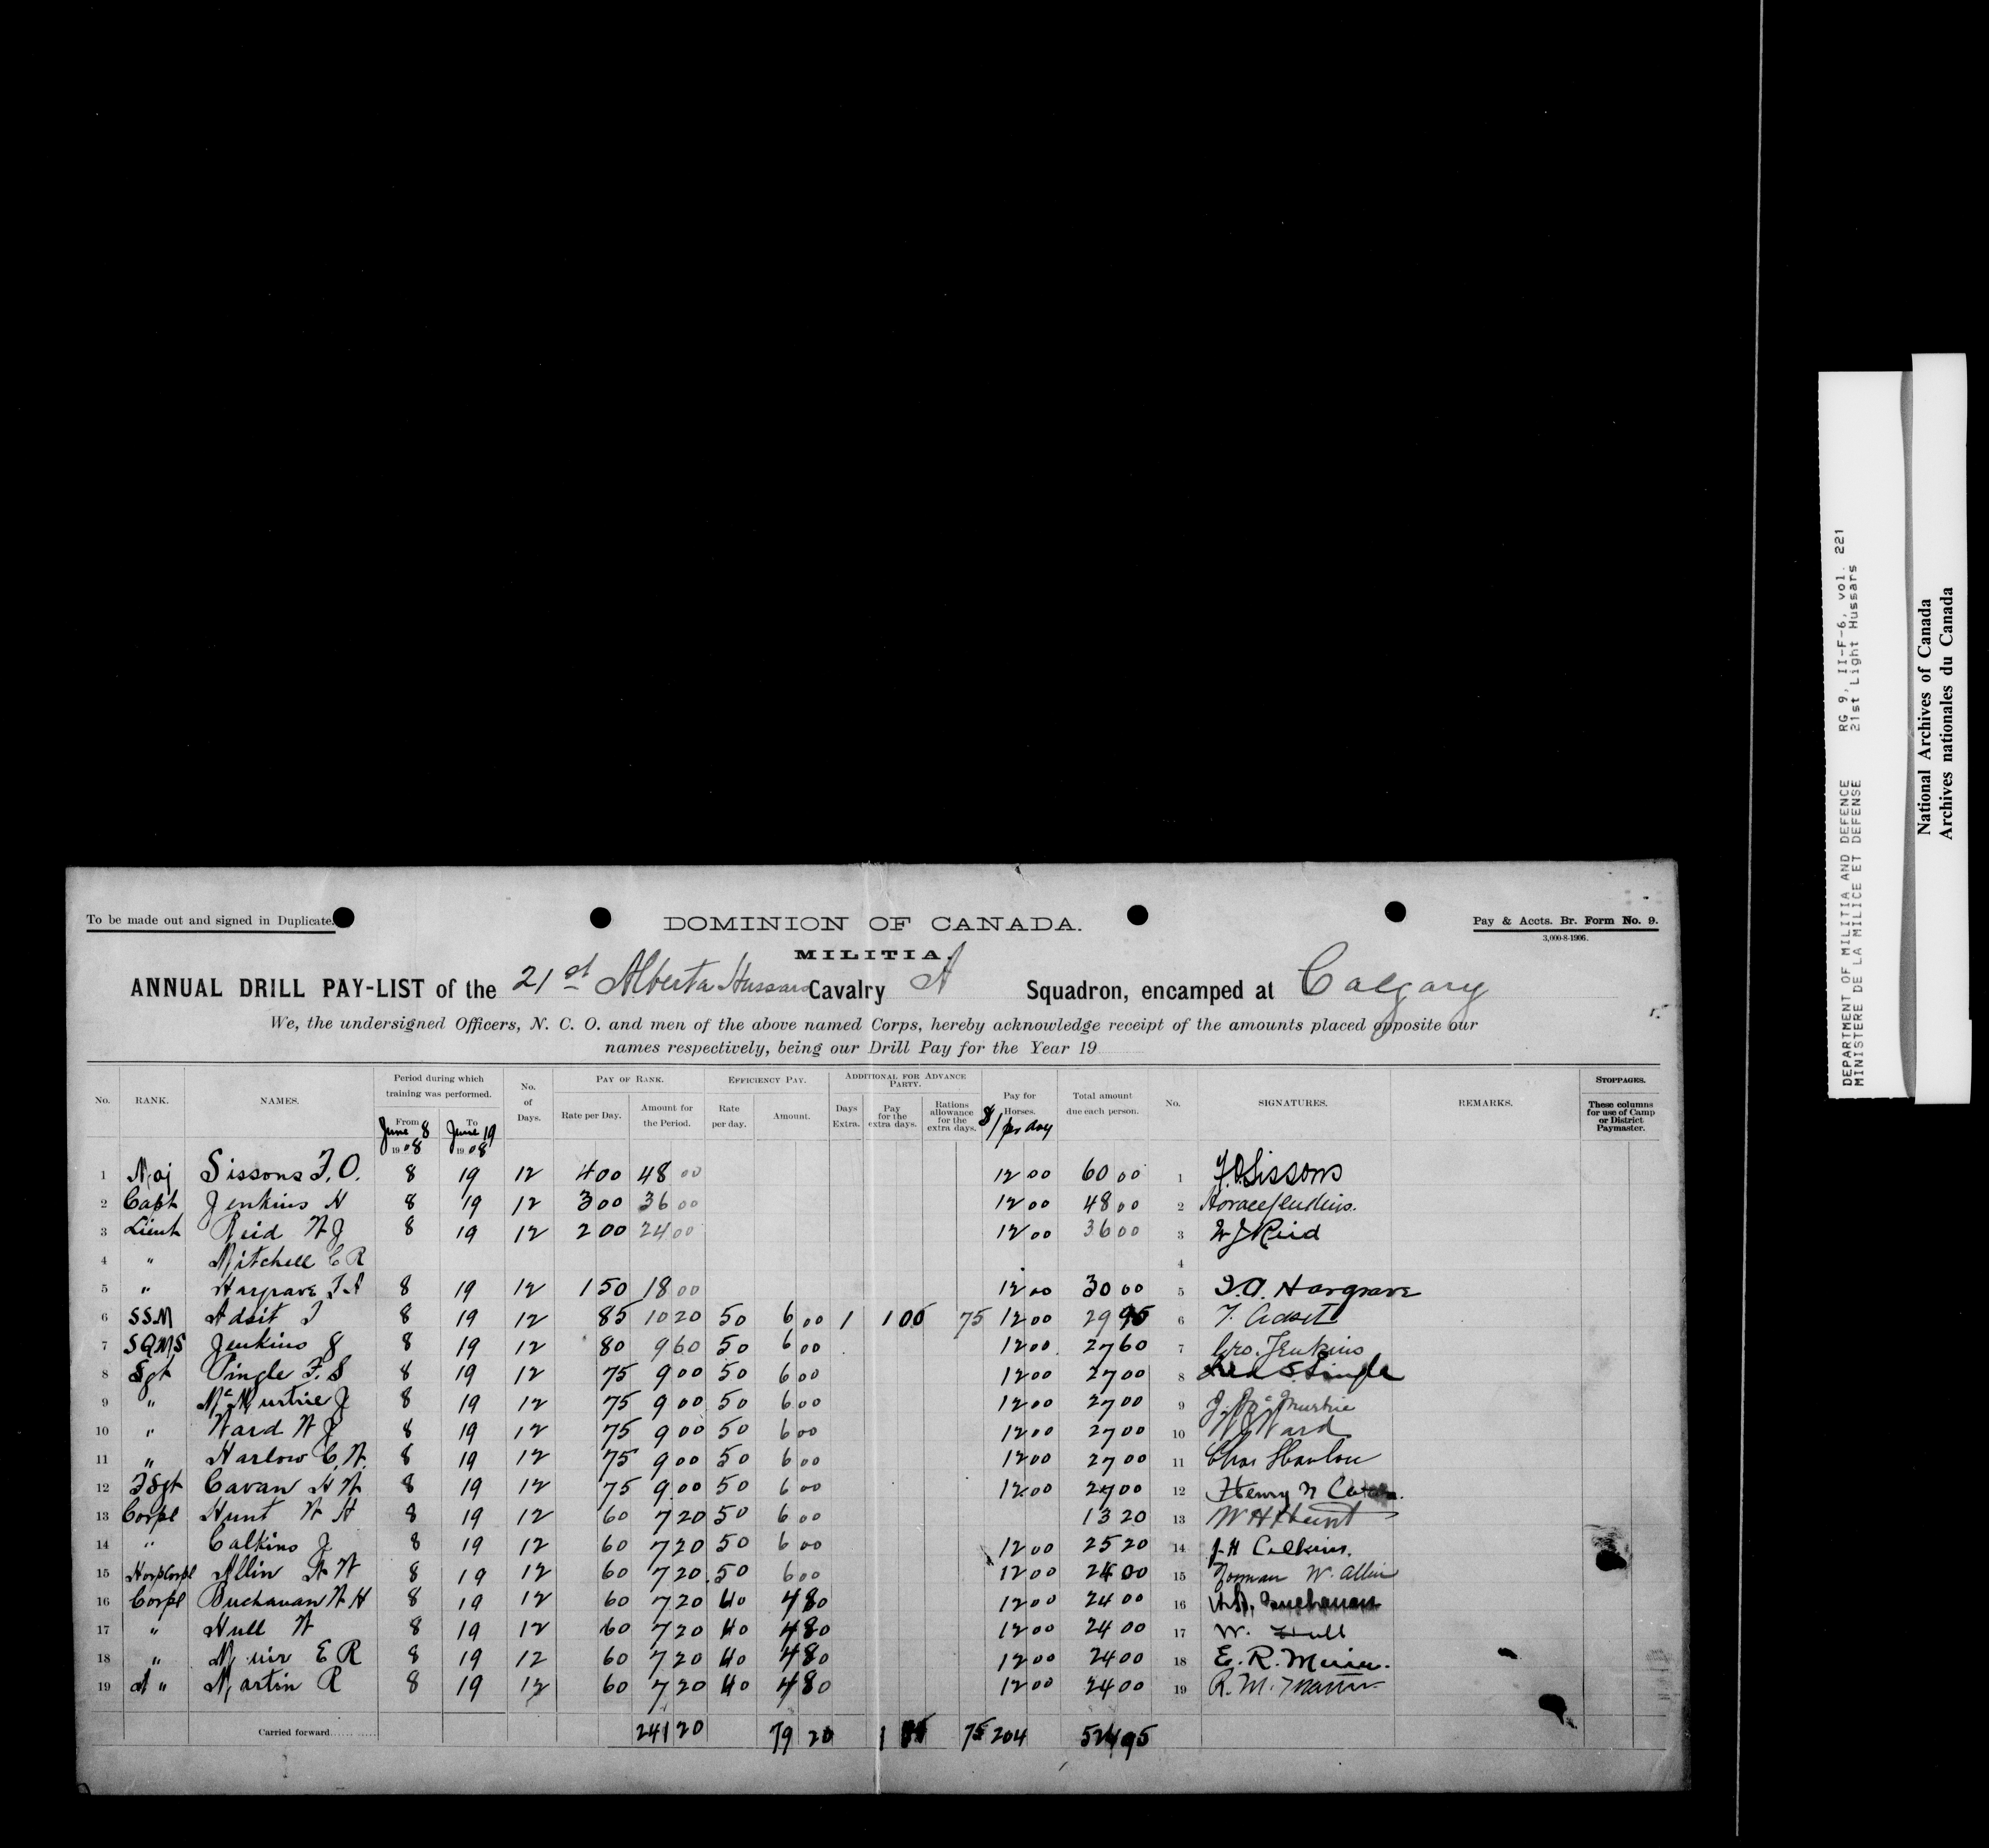 To be made out and signed in Duplicate.
DOMINION OF CANADA.
Pay & Accts. Br. Form No. 9.
3,000-8-1906.
MILITIA.
ANNUAL DRILL PAY-LIST of the 21st Alberta Hussars Cavalry A Squadron, encamped at Calgary
We, the undersigned Officers, N. C. O. and men of the above named Corps, hereby acknowledge receipt of the amounts placed opposite our
names respectively, being our Drill Pay for the Year 19
No. RANK. NAMES. Period during which training was performed. From June 8 1908 To June 19 1908 No. of Days. PAY OF RANK. Rate per Day. Amount for the Period. EFFICIENCY PAY. Rate per day. Amount. ADDITIONAL FOR ADVANCE PARTY. Days Extra. Pay for the extra days. Rations allowance for the extra days. Pay for Horses. $1/per day Total amount due each person. No. SIGNATURES. REMARKS. STOPPAGES. These columns for use of Camp or District Paymaster.
1 Maj Sissons F.O. 8 19 12 4 00 48 00 12 00 60 00 1 F.O. Sissons
2 Capt Jenkins H 8 19 12 3 00 36 00 12 00 48 00 2 Horace Jenkins.
3 Lieut Reid W J 8 19 12 2 00 24 00 12 00 36 00 3 W J Reid
4 " Mitchell C R 4
5 " Hargrave T.A 8 19 12 1 50 18 00 12 00 30 00 5 T.A. Hargrave
6 SSM Adsit T 8 19 12 85 10 20 50 6 00 1 1 00 75 12 00 29 95 6 T. Adsit
7 SQMS Jenkins G 8 19 12 80 9 60 50 6 00 12 00 27 60 7 Geo. Jenkins
8 Sgt Pingle F. S 8 19 12 75 9 00 50 6 00 12 00 27 00 8 S. Pingle
9 " McMurtrie J 8 19 12 75 9 00 50 6 00 12 00 27 00 9 J. McMurtrie
10 " Ward W J 8 19 12 75 9 00 50 6 00 12 00 27 00 10 W J Ward
11 " Harlow C. W. 8 19 12 75 9 00 50 6 00 12 00 27 00 11 Chas Harlow
12 F Sgt Cavan H N 8 19 12 75 9 00 50 6 00 12 00 27 00 12 Henry N Cavan.
13 Corpl Hunt W H 8 19 12 60 7 20 50 6 00 13 20 13 W H Hunt
14 " Calkins J 8 19 12 60 7 20 50 6 00 12 00 25 20 14 J. H Calkins.
15 Allin N W 8 19 12 60 7 20 50 6 00 12 00 24 00 15 Norman W. Allin
16 Corpl Buchanan W H 8 19 12 60 7 20 40 4 80 12 00 24 00 16 Buchanan
17 " Hull W 8 19 12 60 7 20 40 4 80 12 00 24 00 17 W. Hull
18 " Muir E R 8 19 12 60 7 20 40 4 80 12 00 24 00 18 E. R. Muir.
19 A " Martin R 8 19 12 60 7 20 40 4 80 12 00 24 00 19 R. M. Martin
Carried forward 241 20 79 20 1 75 204 95
DEPARTMENT OF MILITIA AND DEFENCE RG 9, II-F-6, vol. 221
MINISTERE DE LA MILICE ET DEFENSE 21st Light Hussars
National Archives of Canada
Archives nationales du Canada